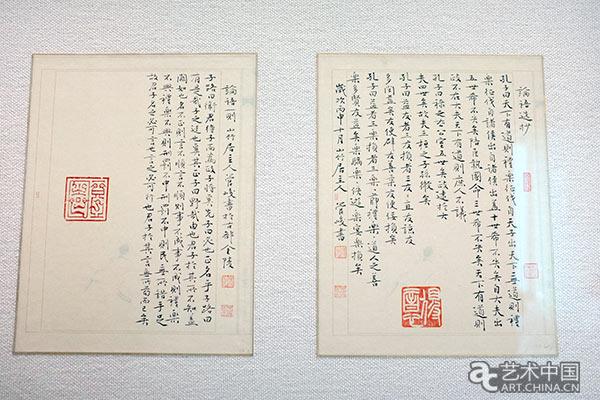 論語選抄
孔子曰天下有道則禮樂征伐自天子出天下無道則禮
樂征伐自諸侯出自諸侯出蓋十世希不失矣自大夫出
五世希不失矣陪臣執國命三世希不失矣天下有道則
政不在大夫天下有道則庶人不議
孔子曰祿之去公室五世矣政逮於大
夫四世矣故夫三桓之子孫微矣
孔子曰益者三友損者三友友直友諒友
多聞益矣友便辟友善柔友便佞損矣
孔子曰益者三樂損者三樂樂節禮樂樂道人之善
樂多賢友益矣樂驕樂樂佚遊樂宴樂損矣
歲次丙申十月山竹居主人管峻書
論語一則 山竹居主人管峻書於古都金陵
子路曰衛君待子而為政子將奚先子曰必也正名乎子路曰
有是哉子之迂也奚其正子曰野哉由也君子於其所不知蓋
闕如也名不正則言不順言不順則事不成事不成則禮樂
不興禮樂不興則刑罰不中刑罰不中則民無所措手足
故君子名之必可言也言之必可行也君子於其言無所苟而已矣
艺术中国
ART.CHINA.CN